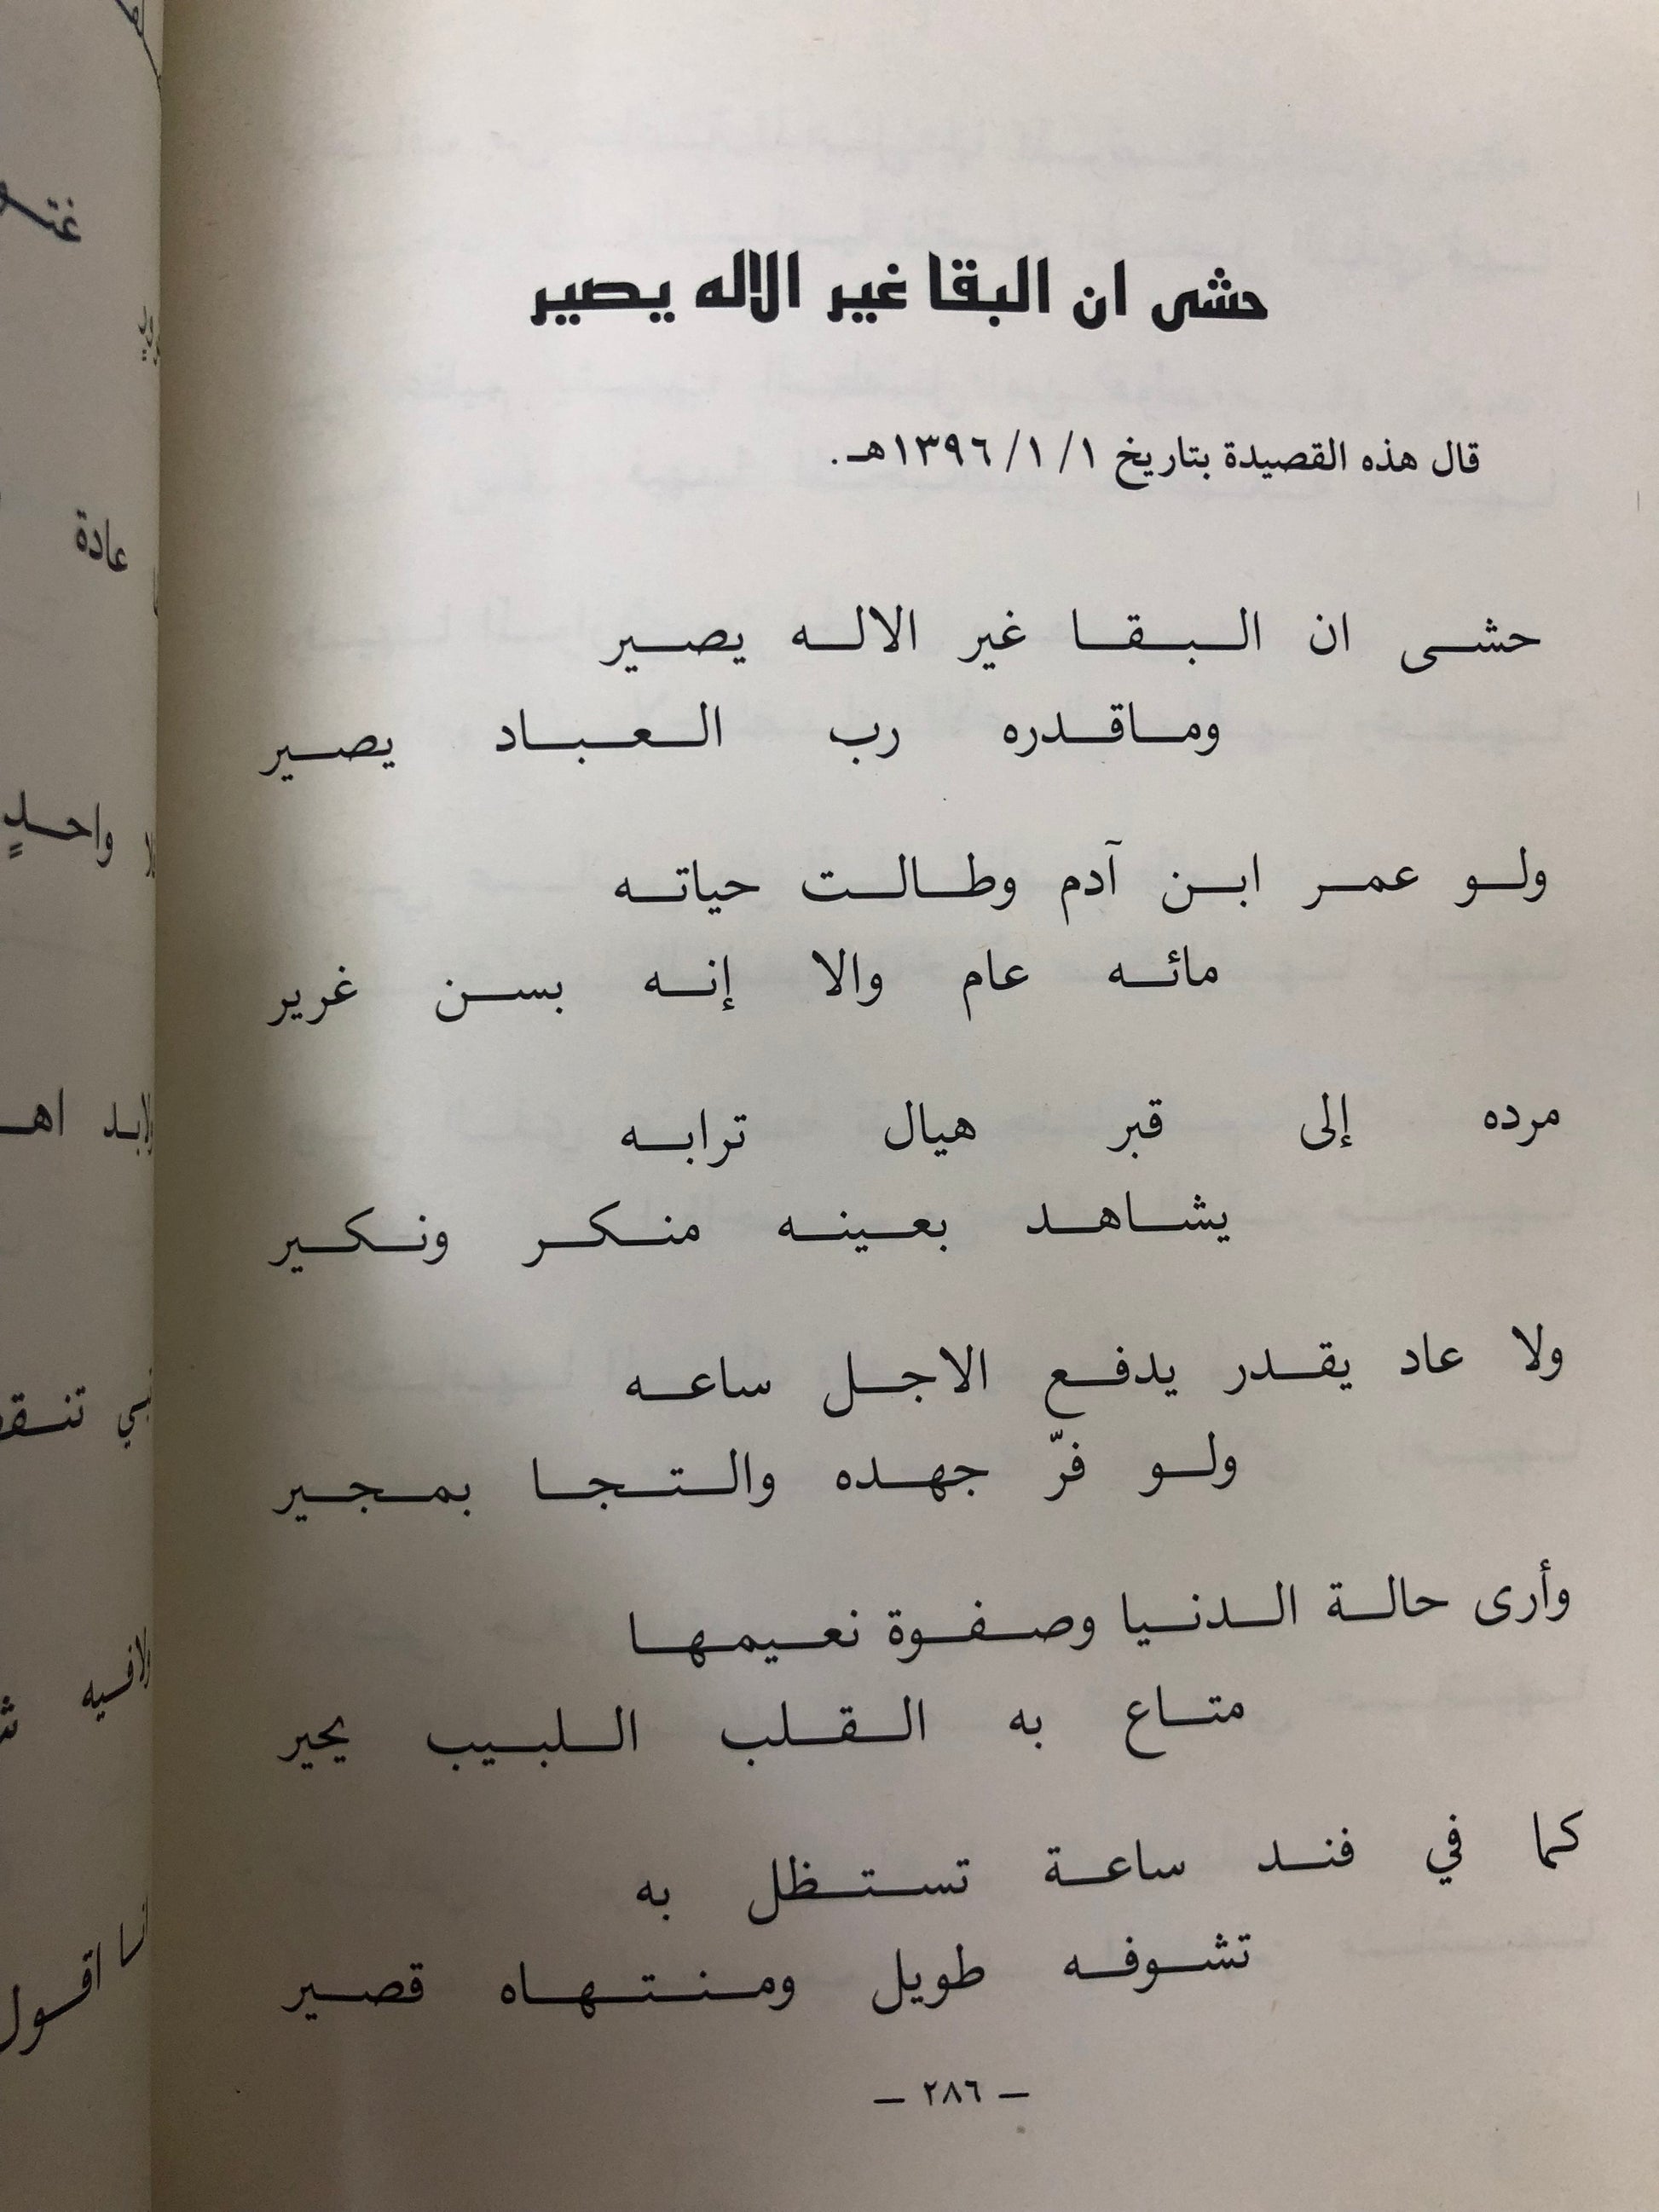 حشى ان البقا غير الاله يصير
قال هذه القصيدة بتاريخ ١/ ١/ ١٣٩٦هـ.
حشى ان البقا غير الاله يصير
وماقدره رب العباد يصير
ولو عمر ابن آدم وطالت حياته
مائه عام والا إنه بسن غرير
مرده إلى قبر هيال ترابه
يشاهد بعينه منكر ونكير
ولا عاد يقدر يدفع الاجل ساعه
ولو فرّ جهده والتجا بمجير
وأرى حالة الدنيا وصفوة نعيمها
متاع به القلب اللبيب يحير
كما في فند ساعة تستظل به
تشوفه طويل ومنتهاه قصير
— ٢٨٦ —
عادة
واحدٍ
اقول